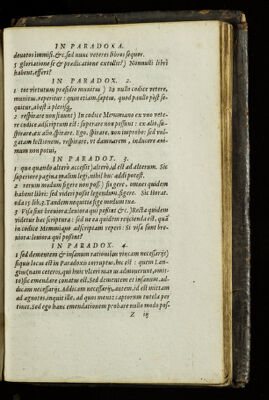 IN PARADOXA.
deuotos immisi. &c. sed nunc veteres libros sequor.
5 gloriatione se & prædicatione extulit?) Nonnulli libri
habent, efferri?
IN PARADOX. 2.
1 tot virtutum præsidio munitus) In nullo codice vetere,
munitus, reperitur: quin etiam, septus, quod paullo post se
quitur, abest à plerisq.
2 respirare non sinunt) In codice Memmiano ex vno vete-
re codice adscriptum est: superare non possunt: ex alio, su-
spirare. ex alio, spirare. Ego, spirare, non improbo: sed vul-
gatam lectionem, respirare, vt damnarem, inducere ani-
mum non potui.
IN PARADOX. 3.
1 quæ quando altero accessit) altero, id est ad alterum. Sic
superiore pagina malim legi, nihil huc addi potest.
2 verum modum figere non poss.) fingere. omnes quidem
habent libri: sed videri possit legendum, figere. Sic
da 15 lib. 3. Tandem nequitiæ fige modum tuæ.
3 Visa sint breuiora: leniora qui possint &c.) Recta quidem
videtur hæc scriptura: sed ne ea quidem reiicienda est, quā
in codice Memmiano adscriptam reperi: Si visa sunt bre-
uiora: leniora quî possint?
IN PARADOX. 4.
1 sed dementem & insanum rationibus vincam necessariis)
si quis locus est in Paradoxis corruptus, hic est: quem Lam-
bin(nam ceteros, qui huic vlceri manus admouerunt, omit-
to) sic emendare conatus est. Sed dementem et insanum, ad-
dicam necessariis. Addicam necessariis, autem, id est mittam
ad agnatos, inquit ille, ad quos mente captorum tutela per
tinet. Sed ego hanc emendationem probare nullo modo pos-
Z iij